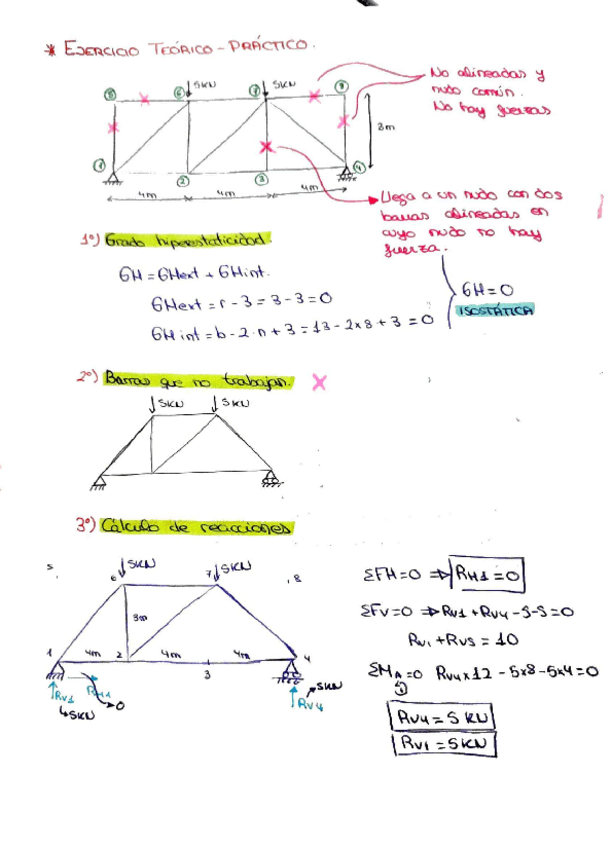 * EJERCICIO TEÓRICO-PRÁCTICO.
5KN 5KN
5 6 7 8
No alineadas y
nudo común.
No hay fuerzas
3m
1 2 3 4
4m 4m 4m
Llega a un nudo con dos
barras alineadas en
cuyo nudo no hay
fuerza.
1º) Grado hiperestaticidad.
GH = GHext + GHint.
GHext = r - 3 = 3 - 3 = 0
GHint = b - 2·n + 3 = 13 - 2x8 + 3 = 0
GH = 0
ISOSTÁTICA
2º) Barras que no trabajan. X
5KN 5KN
3º) Cálculo de reacciones
5 6 5KN 7 5KN 8
3m
1 4m 2 4m 3 4m 4
RV1 RH1 0
5KN
RV4 5KN
ΣFH=0 ⇒ RH1 = 0
ΣFV=0 ⇒ RV1 + RV4 - 5 - 5 = 0
RV1 + RV5 = 10
ΣMA=0 RV4x12 - 5x8 - 5x4 = 0
1
RV4 = 5KN
RV1 = 5KN